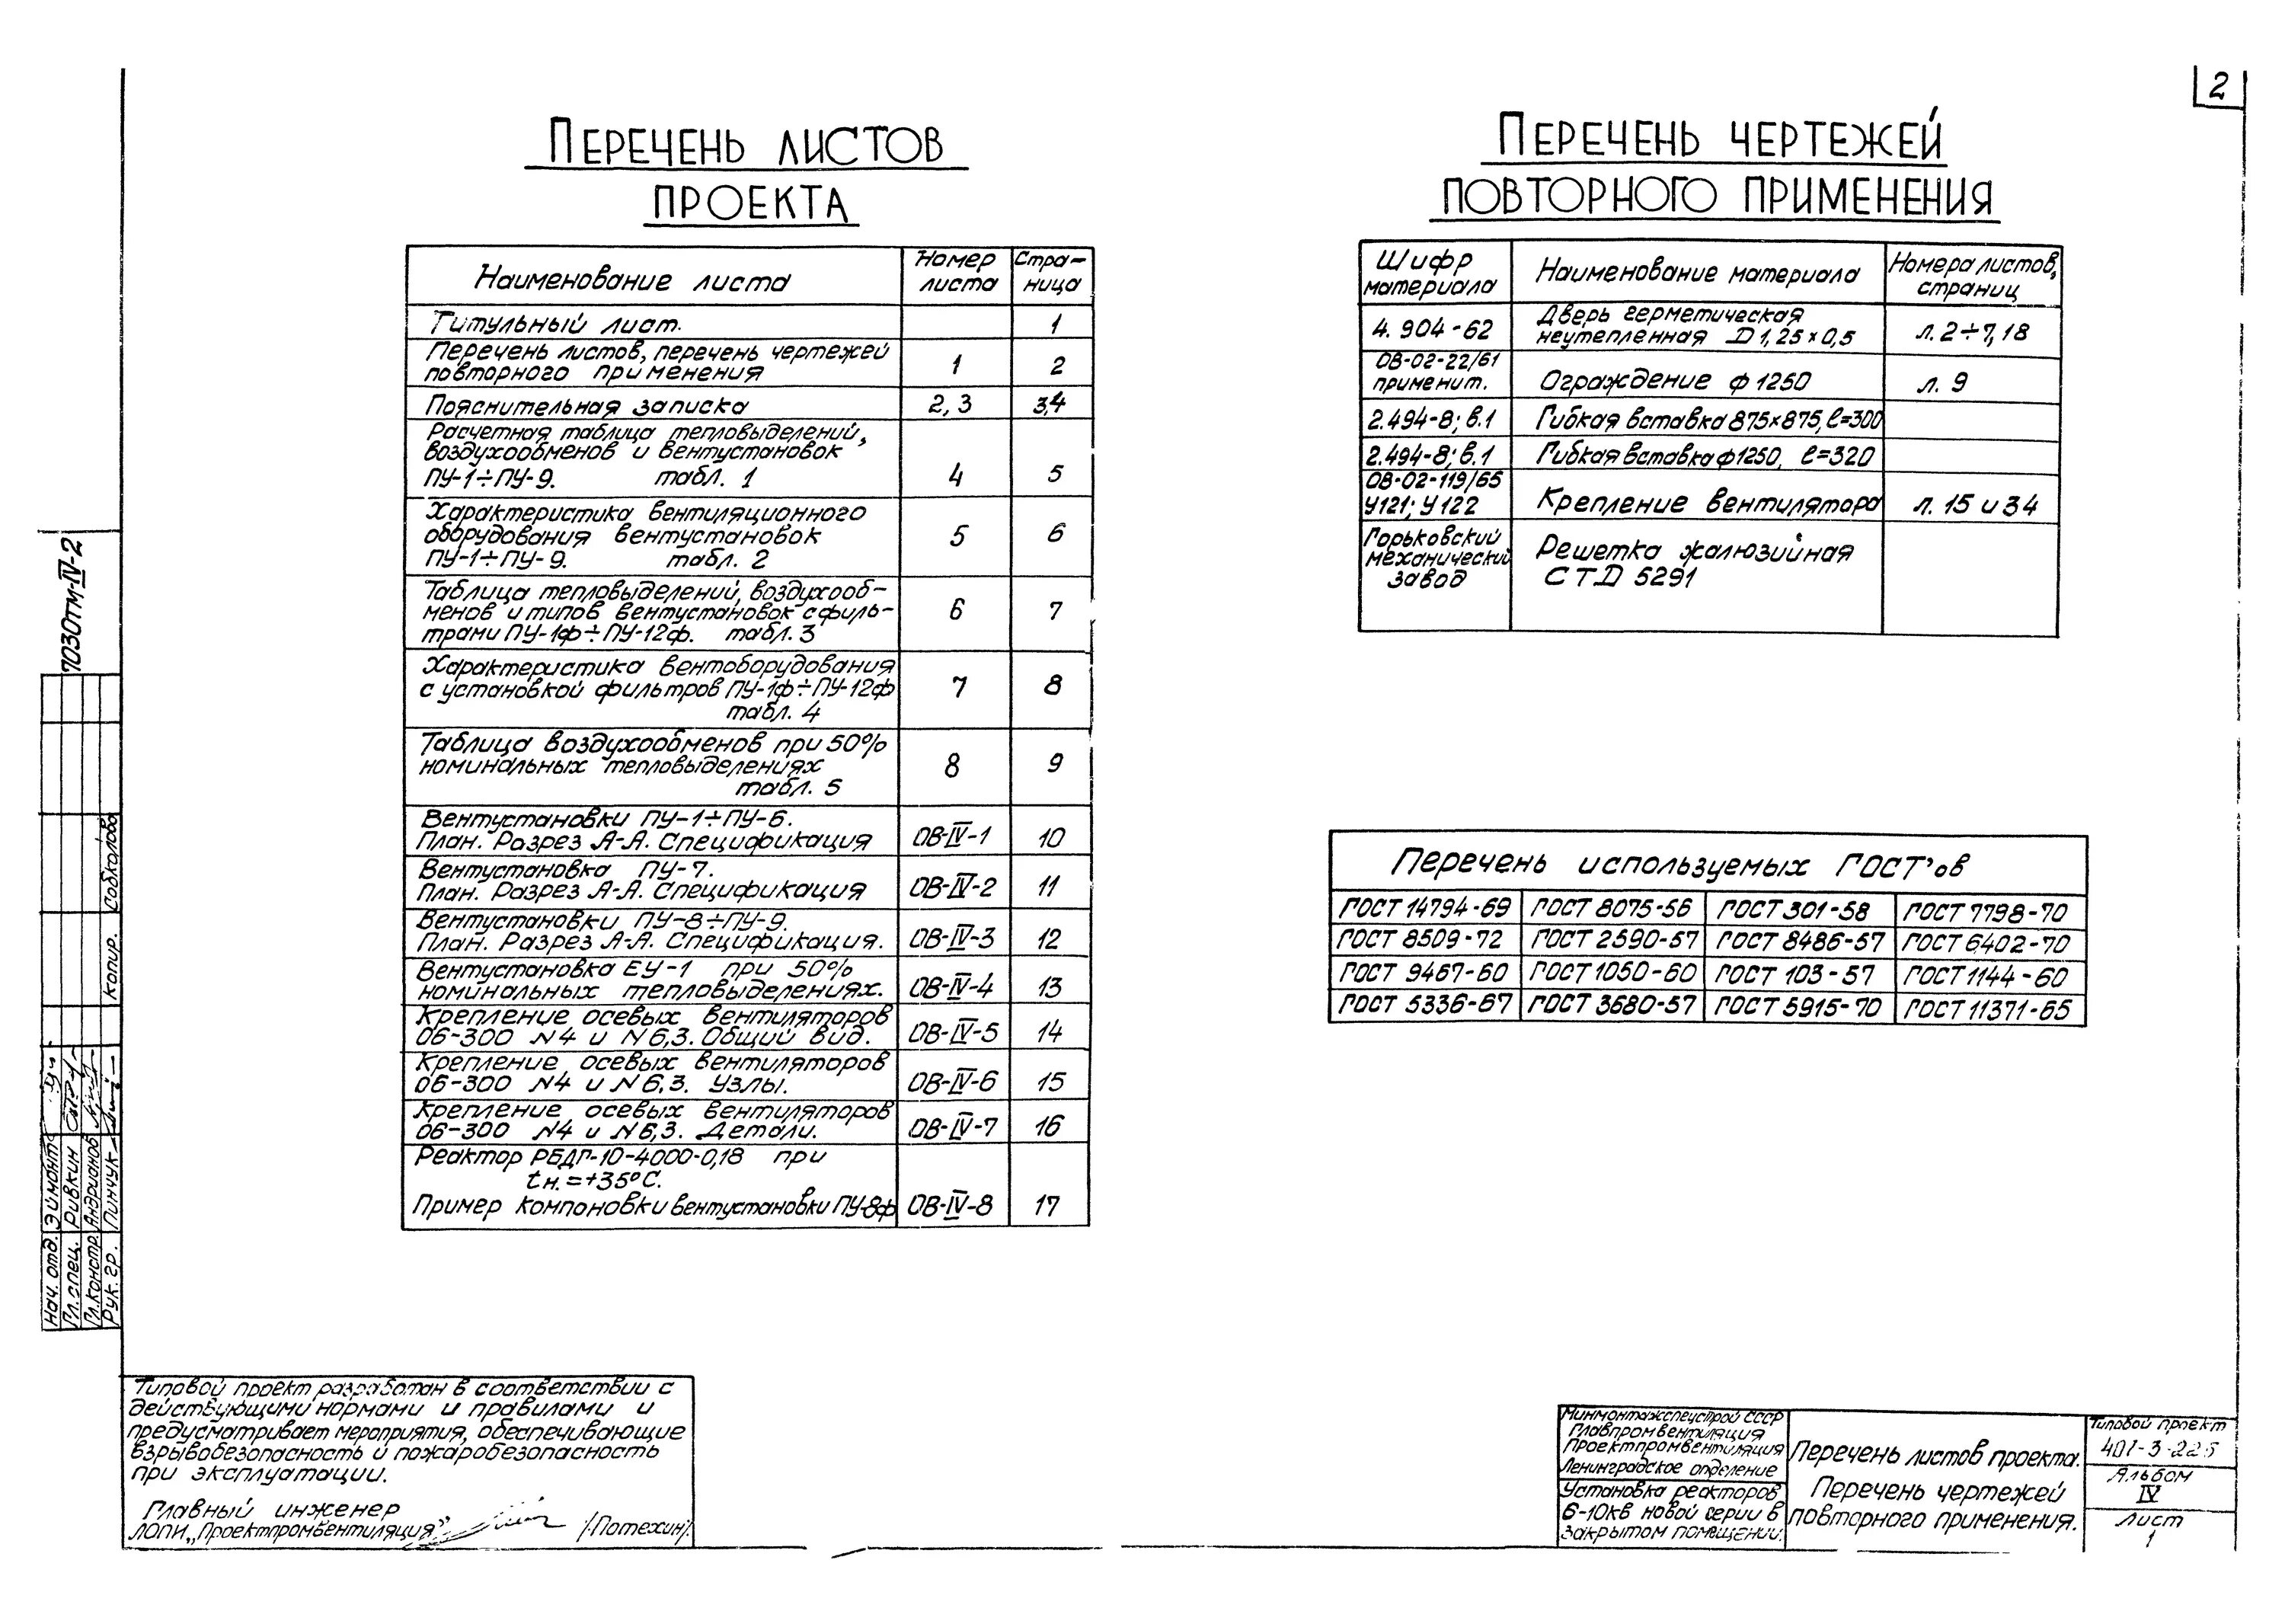 2
ПЕРЕЧЕНЬ ЛИСТОВ
ПРОЕКТА
Наименование листа
Номер листа
Стра-ница
Титульный лист.
1
Перечень листов, перечень чертежей
повторного применения
1
2
Пояснительная записка
2, 3
3,4
Расчетная таблица тепловыделений,
воздухообменов и вентустановок
ПУ-1÷ПУ-9. табл. 1
4
5
Характеристика вентиляционного
оборудования вентустановок
ПУ-1÷ПУ-9. табл. 2
5
6
Таблица тепловыделений, воздухооб-
менов и типов вентустановок с филь-
трами ПУ-1ф÷ПУ-12ф. табл. 3
6
7
Характеристика вентоборудования
с установкой фильтров ПУ-1ф÷ПУ-12ф
табл. 4
7
8
Таблица воздухообменов при 50%
номинальных тепловыделениях
табл. 5
8
9
Вентустановки ПУ-1÷ПУ-6.
План. Разрез А-А. Спецификация
ОВ-IV-1
10
Вентустановка ПУ-7.
План. Разрез А-А. Спецификация
ОВ-IV-2
11
Вентустановки ПУ-8÷ПУ-9.
План. Разрез А-А. Спецификация.
ОВ-IV-3
12
Вентустановка ЕУ-1 при 50%
номинальных тепловыделениях.
ОВ-IV-4
13
Крепление осевых вентиляторов
06-300 N4 и N6,3. Общий вид.
ОВ-IV-5
14
Крепление осевых вентиляторов
06-300 N4 и N6,3. Узлы.
ОВ-IV-6
15
Крепление осевых вентиляторов
06-300 N4 и N6,3. Детали.
ОВ-IV-7
16
Реактор РБДГ-10-4000-0,18 при
tн.=+35°С.
Пример компоновки вентустановки ПУ-8ф
ОВ-IV-8
17
ПЕРЕЧЕНЬ ЧЕРТЕЖЕЙ
ПОВТОРНОГО ПРИМЕНЕНИЯ
Шифр
материала
Наименование материала
Номера листов,
страниц
4.904-62
Дверь герметическая
неутепленная D 1,25×0,5
л. 2÷7, 18
ОВ-02-22/61
применит.
Ограждение ф 1250
л. 9
2.494-8; в.1
Гибкая вставка 875×875, ℓ=300
2.494-8; в.1
Гибкая вставка ф1250, ℓ=320
ОВ-02-119/65
У121; У122
Крепление вентилятора
л. 15 и 34
Горьковский
механический
завод
Решетка жалюзийная
СТД 5291
Перечень используемых ГОСТ'ов
ГОСТ 14794-69 ГОСТ 8075-56 ГОСТ 301-58 ГОСТ 7798-70
ГОСТ 8509-72 ГОСТ 2590-57 ГОСТ 8486-57 ГОСТ 6402-70
ГОСТ 9467-60 ГОСТ 1050-60 ГОСТ 103-57 ГОСТ 1144-60
ГОСТ 5336-67 ГОСТ 3680-57 ГОСТ 5915-70 ГОСТ 11371-65
7030тм-IV-2
Копир. Собколова
Нач. отд. Эймонт
Гл. спец. Ривкин
Гл. констр. Андрианов
Рук. гр. Пинчук
Типовой проект разработан в соответствии с
действующими нормами и правилами и
предусматривает мероприятия, обеспечивающие
взрывобезопасность и пожаробезопасность
при эксплуатации.
Главный инженер
ЛОПИ „Проектпромвентиляция" /Потехин/
Минмонтажспецстрой СССР
Главпромвентиляция
Проектпромвентиляция
Ленинградское отделение
Установка реакторов
6-10кв новой серии в
закрытом помещении.
Перечень листов проекта.
Перечень чертежей
повторного применения.
Типовой проект
407-3-226
Альбом
IV
Лист
1